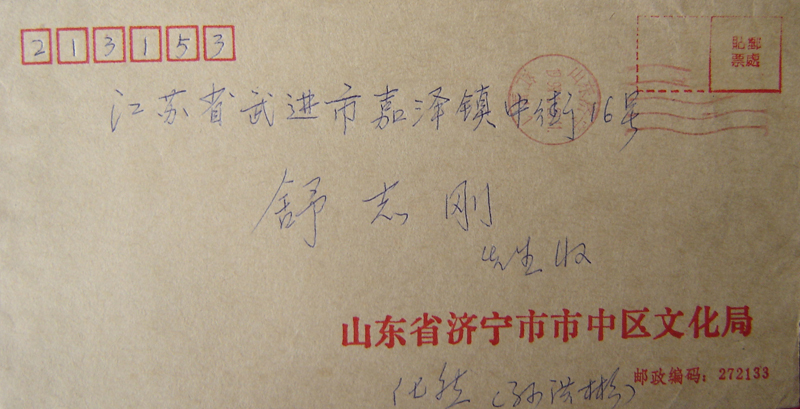 213153
郵票
貼處
江苏省武进市嘉泽镇中街16号
舒志刚
先生收
山东省济宁市市中区文化局
邮政编码：272133
化然（孙洪彬）